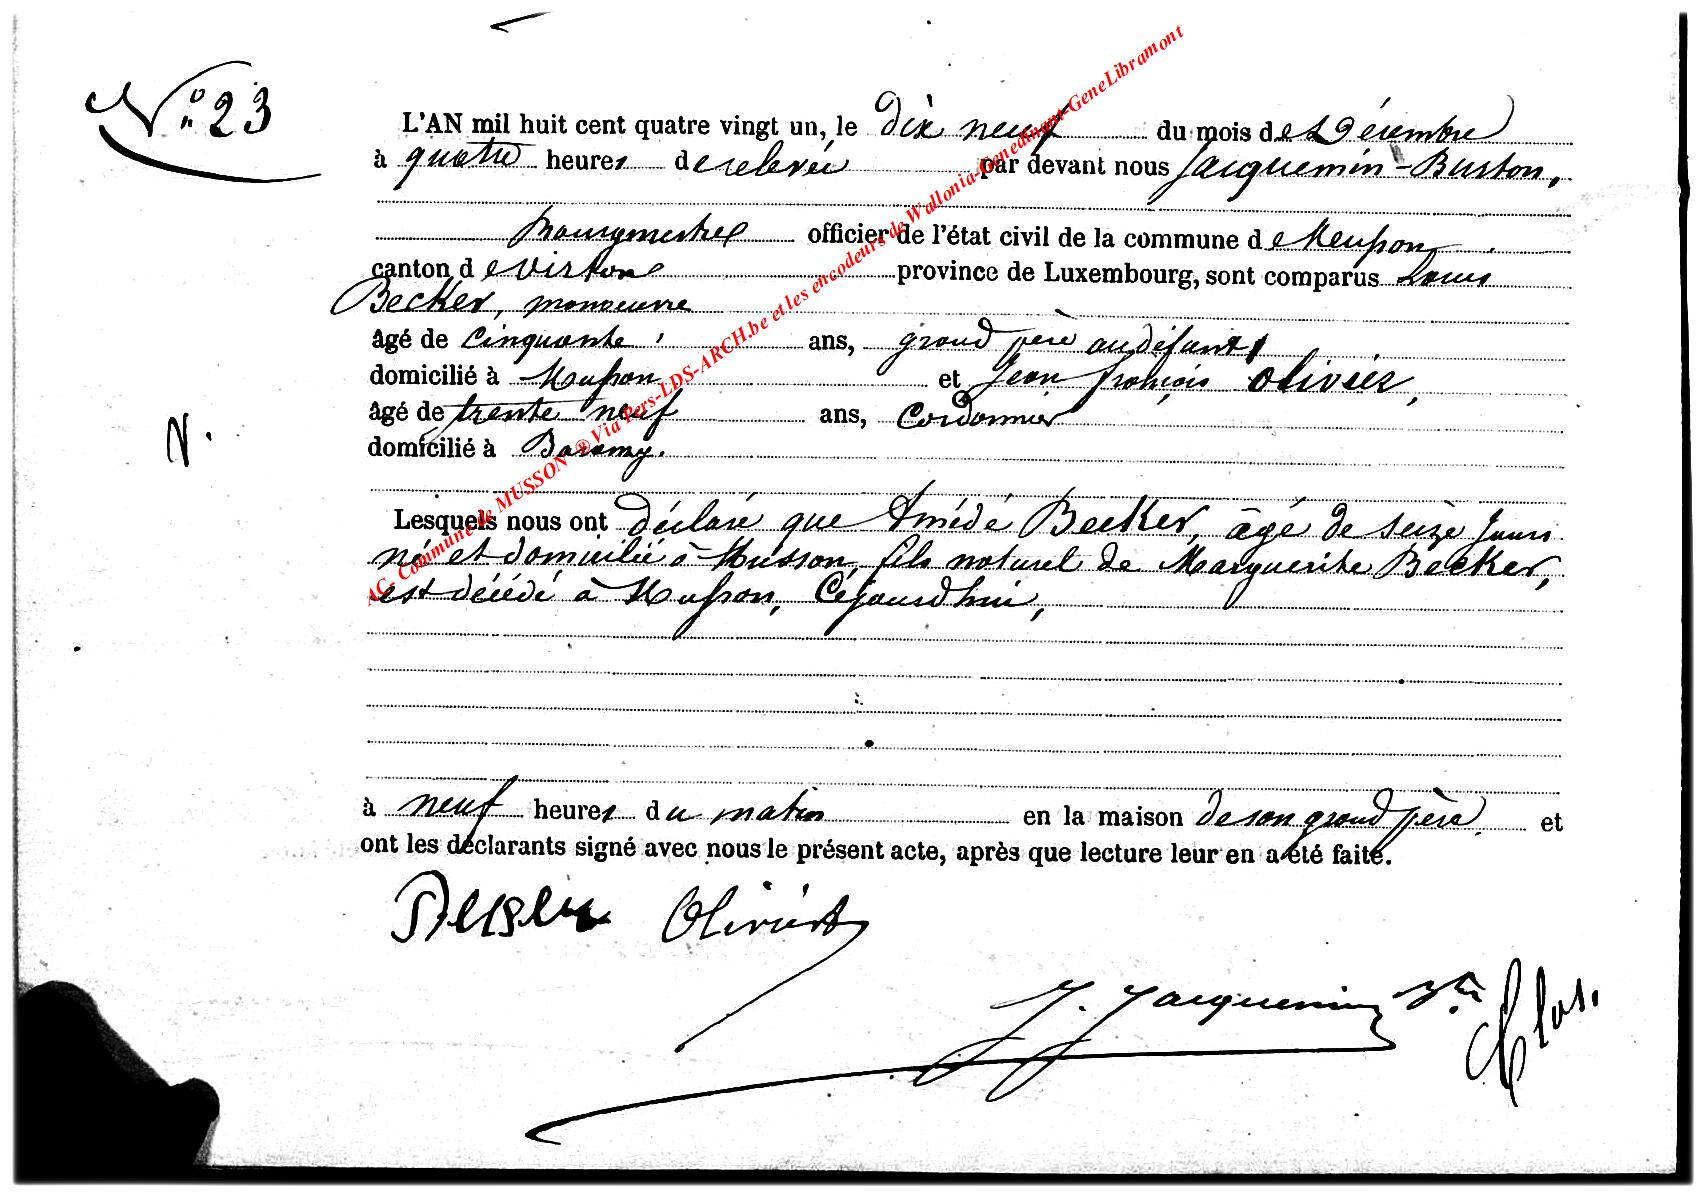 N° 23
L'AN mil huit cent quatre vingt un, le dix neuf du mois de Décembre
à quatre heures de relevée par devant nous Jacquemin-Burton,
Bourgmestre officier de l'état civil de la commune de Musson
canton de Virton province de Luxembourg, sont comparus Louis
Becker, manoeuvre
âgé de cinquante ans, grand père au défunt
domicilié à Musson et Jean françois Olivier,
âgé de trente neuf ans, Cordonnier
domicilié à Baranzy.
N.
Lesquels nous ont déclaré que Amédé Becker, âgé de seize Jours
né et domicilié à Musson, fils naturel de Marguerite Becker,
est décédé à Musson, Cejourd'hui,
à neuf heures du matin en la maison de son grand père et
ont les déclarants signé avec nous le présent acte, après que lecture leur en a été faite.
Becker Olivier
J. Jacquemin
Clos.
AC. Commune de MUSSON ® Via Pers-LDS-ARCH.be et les encodeurs de Wallonia-Genedinant-GeneLibramont